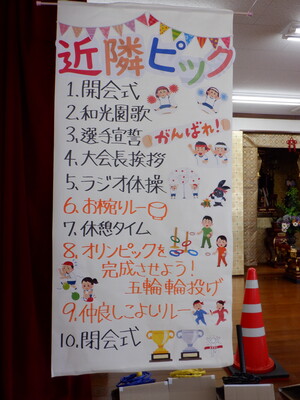 近隣ピック
1.開会式
2.和光園歌
3.選手宣誓
がんばれ!
4.大会長挨拶
5.ラジオ体操
6.お椀リレー
7.休憩タイム
8.オリンピックを
完成させよう!
五輪輪投げ
9.仲良しこよしリレー
10.閉会式